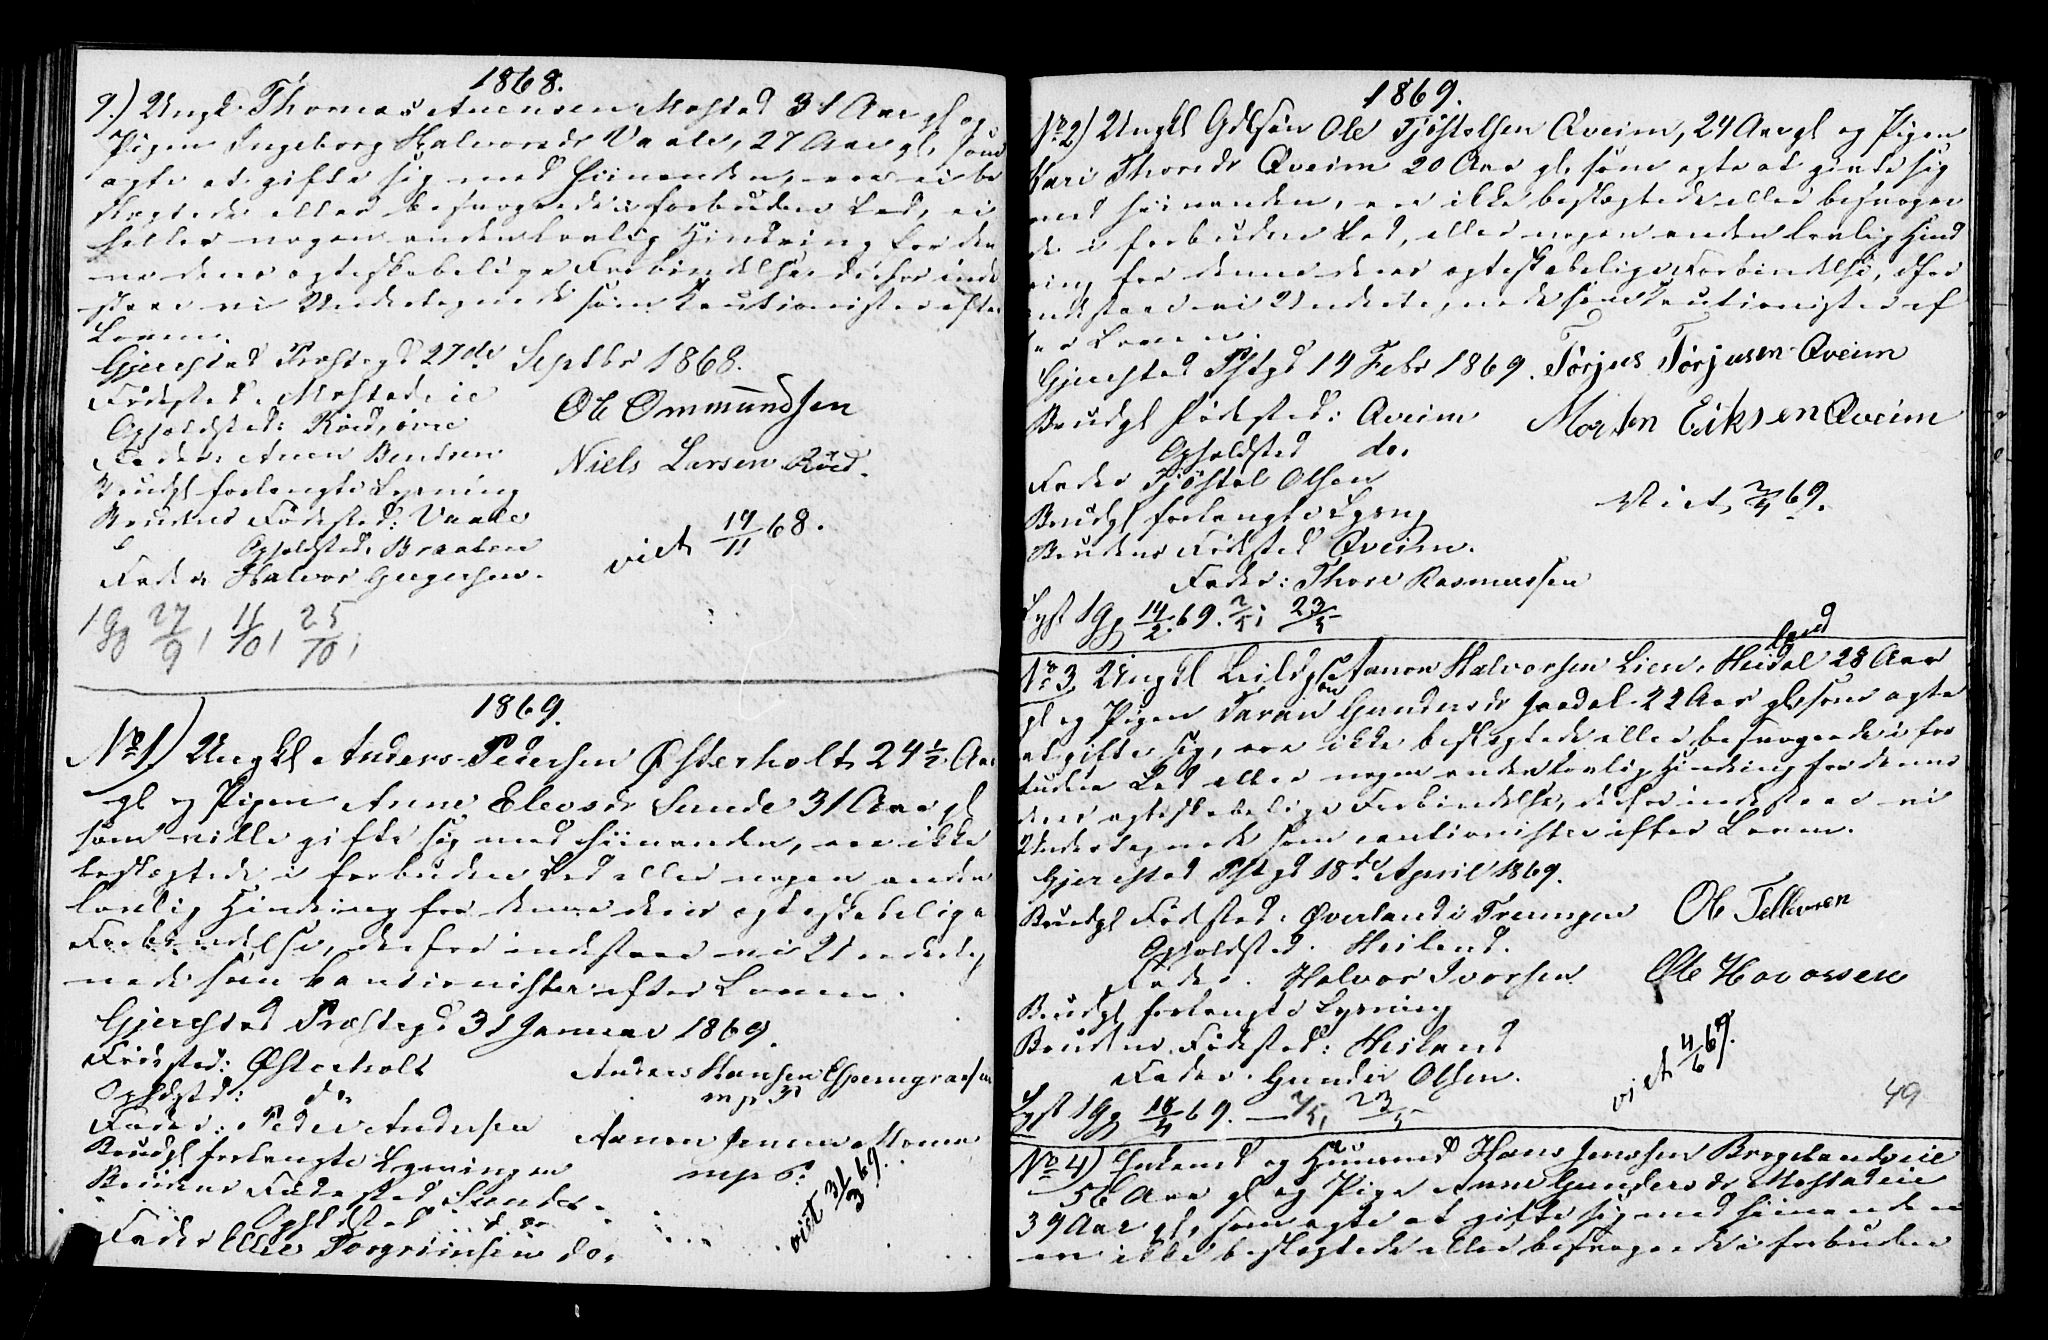 1868.
9.) Ungk. Thomas Aanensen Mostad 31 Aar gl og
Pigen Ingeborg Halvorsdr Vaale, 27 Aar gl, som
agte at gifte sig med hinanden, ere ei be
slægtede eller besvogrede i forbudne Led, ei
heller nogen anden lovlig Hindring for den
ne deres ægteskabelige Forbindelse derfor inde
staae vi Undertegnede som Cautionister efter
Loven.
Gjerestad Præstegd 27de Septbr 1868.
Fødested. Mostadeie
Opholdsted: Røed, øvre
Fader: Aanen Bentsen
Brudg forlangte Lysning
Brudens Fødested: Vaale
Opholdsted. Braaten
Fader Halvor Gregersen.
Ole Ommundsen
Niels Larsen Røed.
viet 14/11 68.
1 Gg 27/9, 11/10, 25/10,
1869.
No 1.) Ungkl Anders Pedersen Østerholt 24½ Aar
gl og Pigen Anne Elevsdr Sunde 31 Aar gl
som ville gifte sig med hinanden, ere ikke
beslægtede i forbudne Led eller nogen anden
lovlig Hindring for denne deres ægteskabelige
Forbindelse, derfor indestaae vi Underteg
nede som Cautionister efter Loven.
Gjerestad Præstegd 31 Januar 1869.
Fødested: Østerholt
Opholdstd: do
Fader: Peder Andersen
Brudg forlangte Lysningen
Brudens Fødested Sunde.
Opholdsted do
Fader Ellev Torgrimsen do.
Anders Hansen Espemgræsen
m p P
Aanon Jensen Moen
m p P.
viet 31/3 69.
1869.
No 2) Ungkl Gdssøn Ole Tjøstolsen Qveim, 24 Aar gl og Pigen
Kari Thoresdr Qveim 20 Aar gl, som agte at gifte sig
med hinanden, ere ikke beslægtede eller besvogre
de i forbudne Led, eller nogen anden lovlig Hind
ring for denne deres ægteskabelige Forbindelse, derfor
indestaae vi Undertegnede som Cautionister ef
ter Loven.
Gjerestad Pstgd 14 Febr 1869.
Torjus Torjusen Qveim
Brudg Fødested: Qveim
Morten Eriksen Qveim
Opholdsted do.
Fader Tjøstol Olsen
Brudg forlangte Lysng
Viet 2/4 69.
Brudens Fødested Qveim.
Fader: Thore Rasmussen
Lyst 1 Gg 14/2 69.
No 3, Ungkl Aanon Halvorsen Lien, Heieland 28 Aar
gl og Pigen Taran Gundersdr 22 Aar gl, som agte
at gifte sig, ere ikke beslægtede eller besvogrede i for
budne Led eller nogen anden lovlig Hindring for denne
deres ægteskabelige Forbindelse, derfor indestaae vi
Undertegnede som Cautionister efter Loven.
Gjerestad Pstgd 18de April 1869.
Brudg Fødested: Øverland i Treungen
Opholdsted. Heiland.
Fader. Halvor Ivorsen
Brudg forlangte Lysning
Brudens Fødested: Heiland
Fader. Gunder Olsen.
Ole Tellevsen
Ole Hovorsen
viet 4/6 69.
Lyst 1 Gg 18/4 69. 23/5
49
No 4) Enkemd og Huusmd Hans Jensen Brogelandseie
56 Aar gl og Pige Anne Gundersdr Mostadeie
39 Aar gl, som agte at gifte sig med hinanden
ere ikke beslægtede eller besvogrede i forbudne